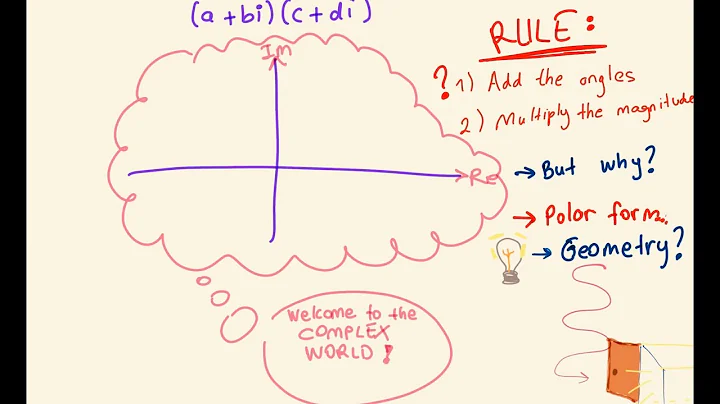 (a+bi)(c+di)
Im
Re
RULE:
? 1) Add the angles
2) Multiply the magnitude
→ But why?
→ Polar form.
→ Geometry?
Welcome to the
COMPLEX
WORLD!